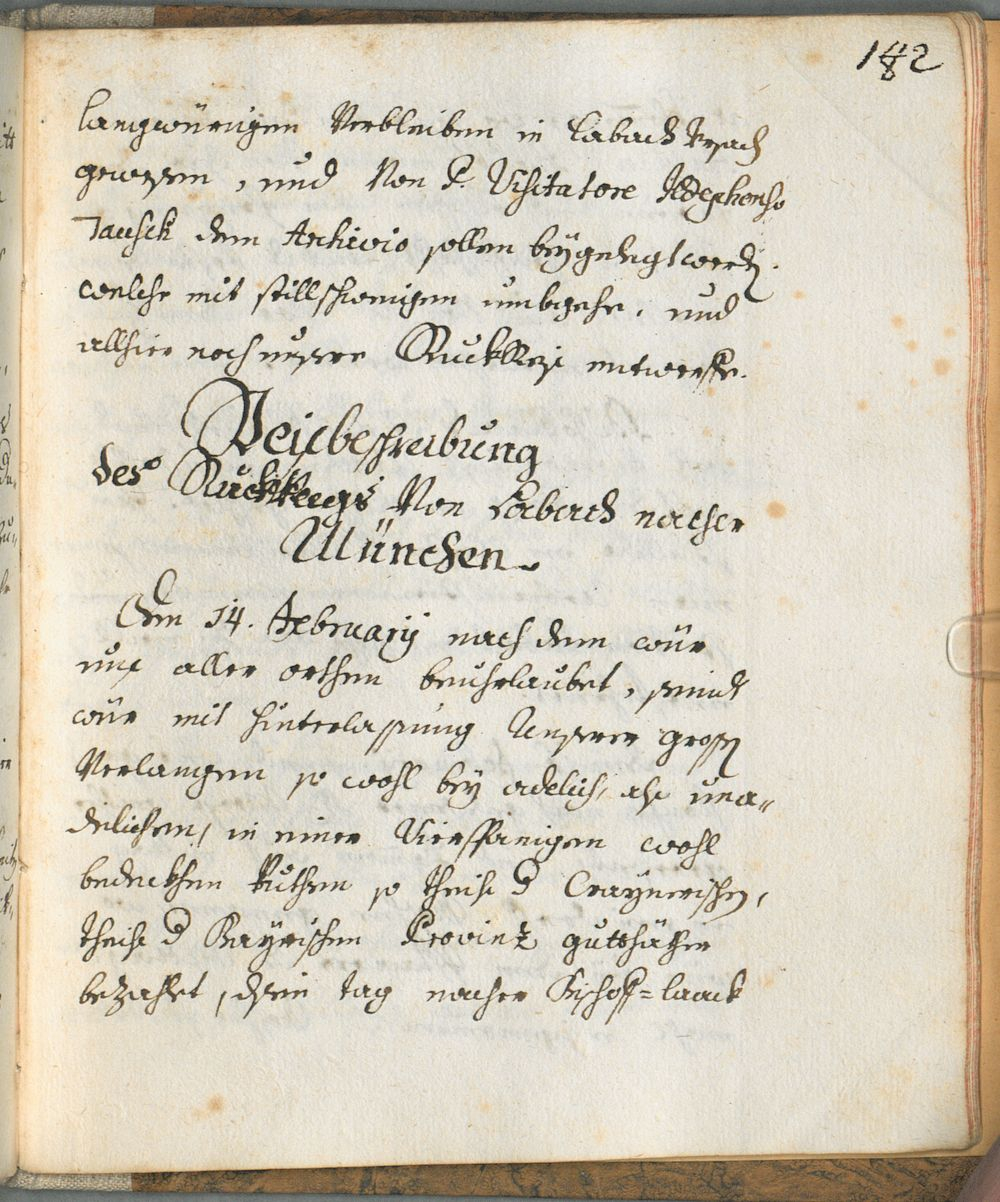 182
langwürigen Verbleiben in Labach Ursach
gewesen, und Von P. Visitatore Ildephonso
Tausck dem Archivio sollen beygelegt werdn.
welche mit stillschweigen umbgehe, und
allhier noch unsere Ruckreys entwerffe.
Reisbeschreibung
des Ruckweegs Von Labach nacher
München.
Den 14. February nach dem wür
uns aller orthen beuhrlaubet, seindt
wür mit hinterlassung unserer grossn
Verlangen so wohl bey adelich, als una„
delichen, in einer Vierspänigen wohl
bedeckhten kutschen so theils d Craynerischen,
theils d Bayrischen Provintz gutthäter
bezahlet, disen tag nacher Bischoff=laack